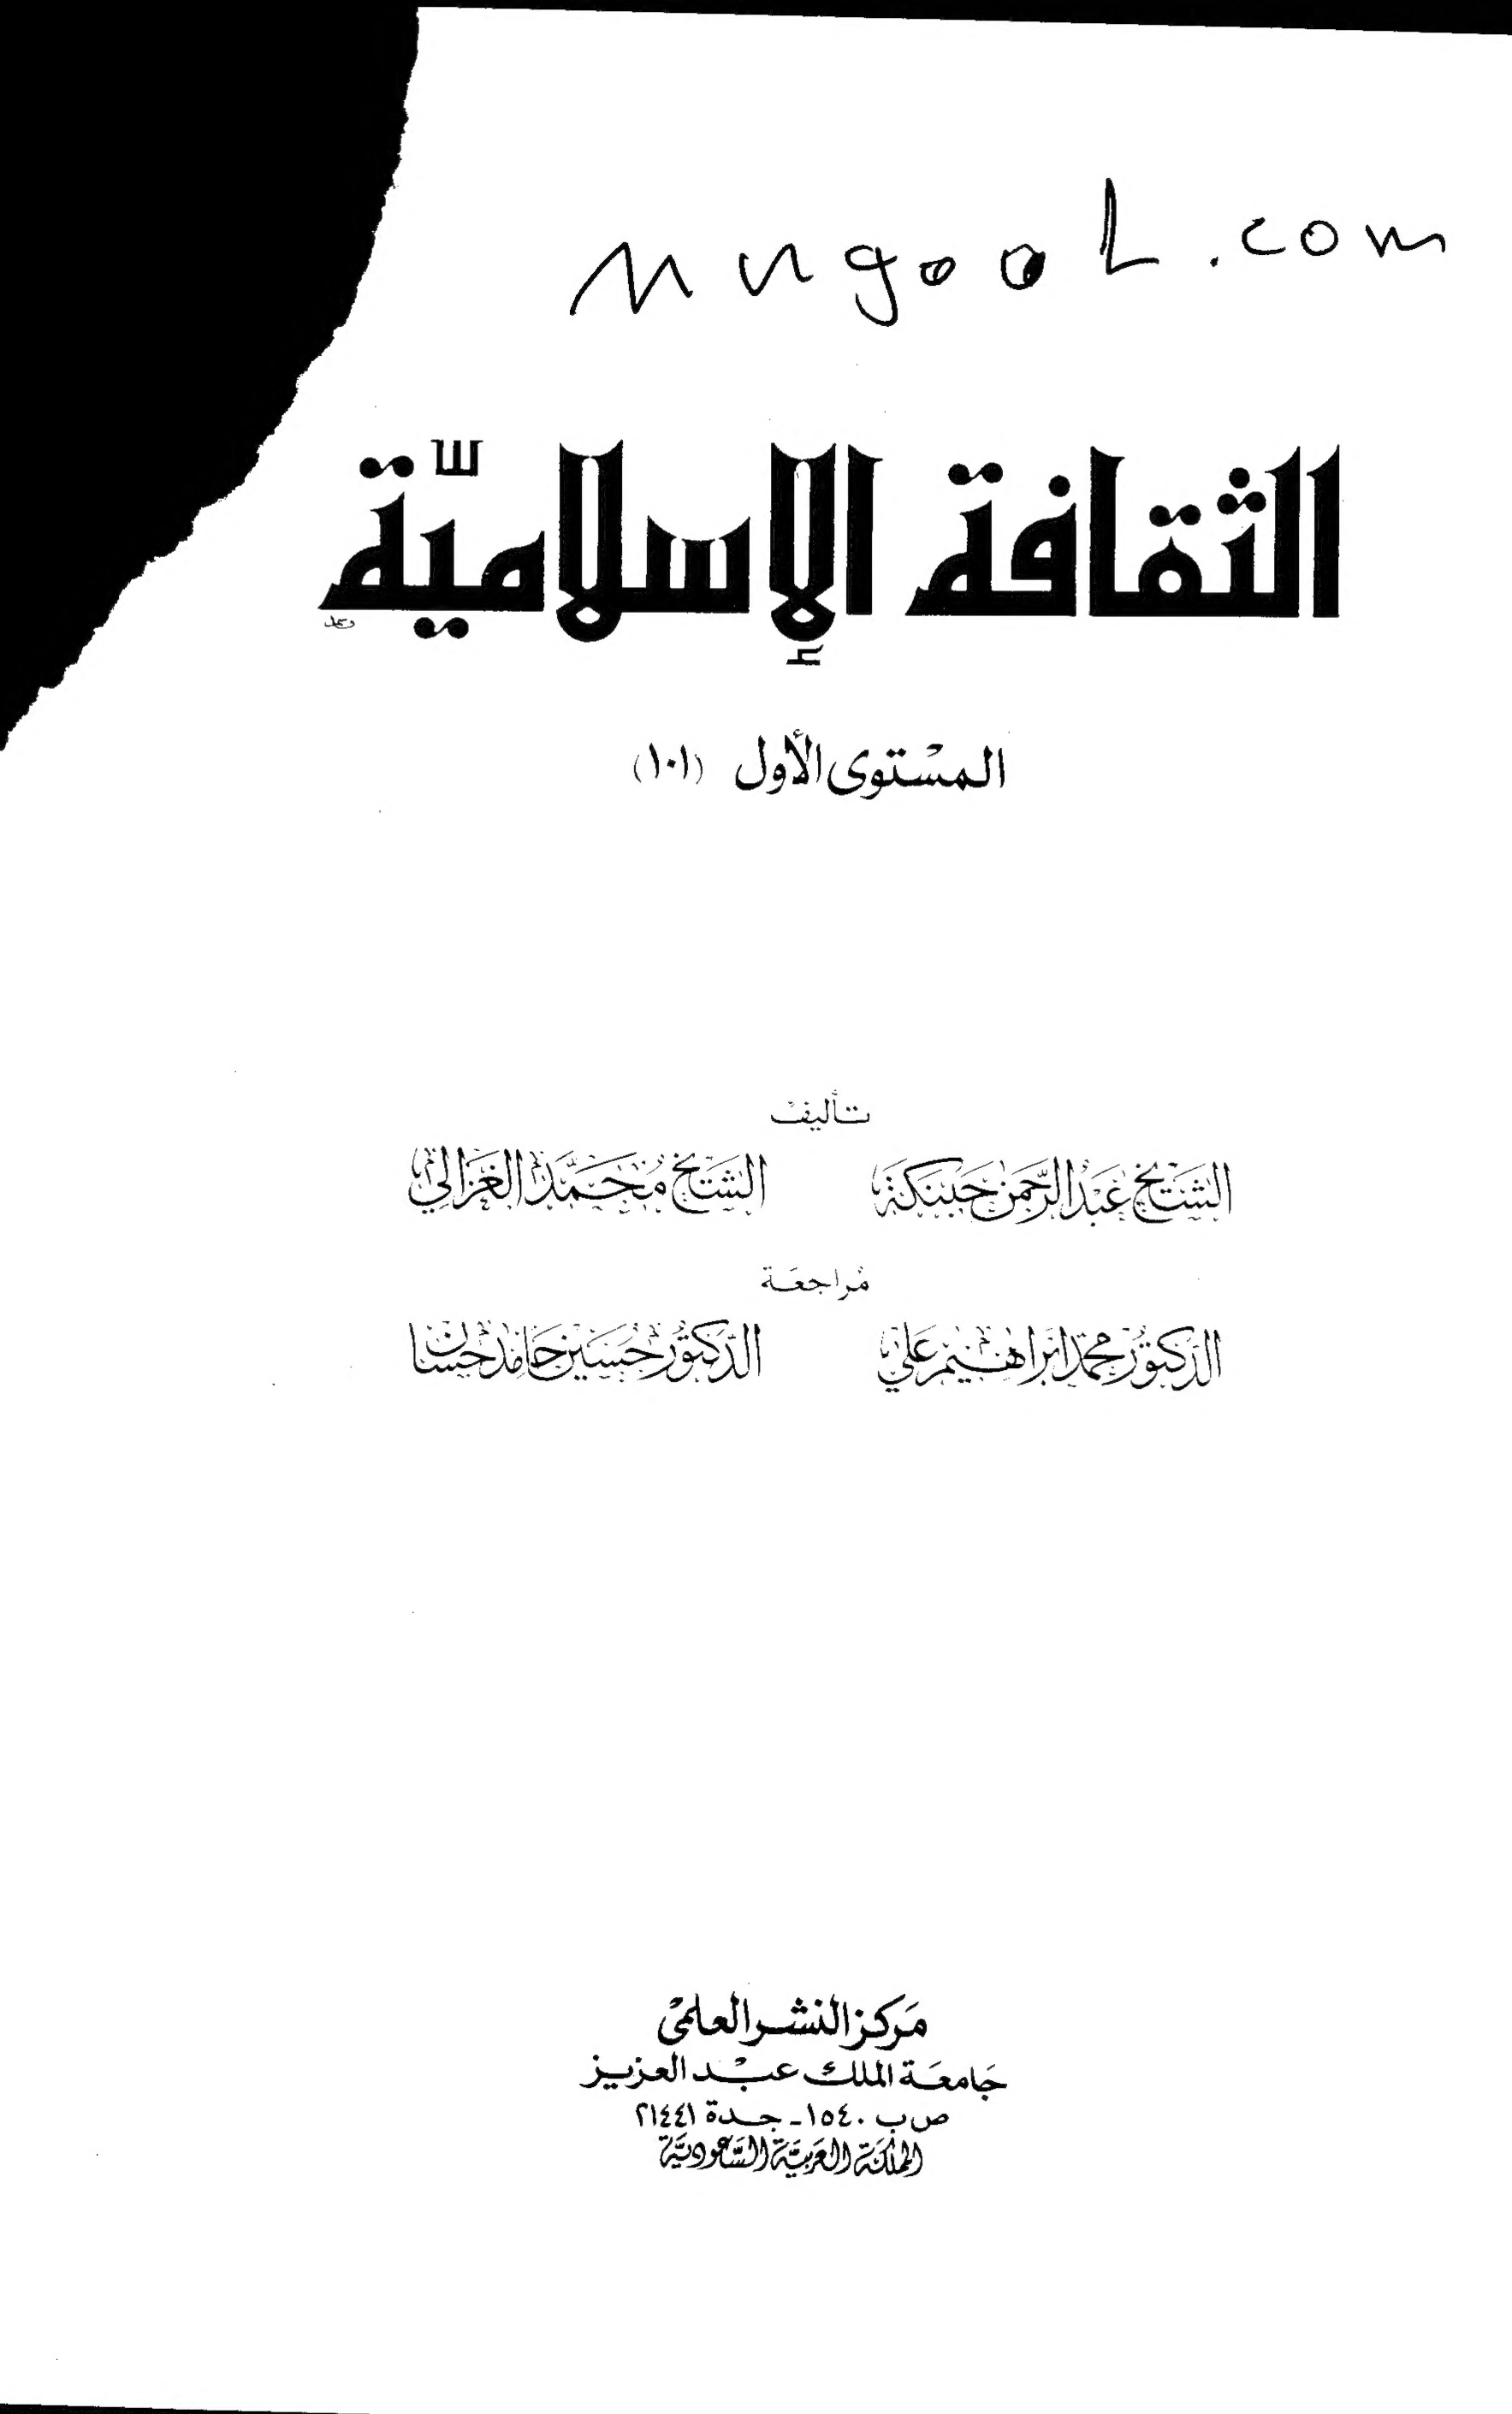 mugool.com
الثقافة الإسلاميّة
المسْتوى الأول (١٠١)
تأليفْ
الشيخ عبد الرحمن حبنكة الشيخ محمد الغزالي
مُراجعَة
الدكتور محمد ابراهيم علي الدكتور حسين حامد حسان
مَركز النشر العلمىْ
جَامعَة الملك عبْد العزيز
ص ب ١٥٤٠ - جدة ٢١٤٤١
المملكة العربيَّة السَّعوديَّة